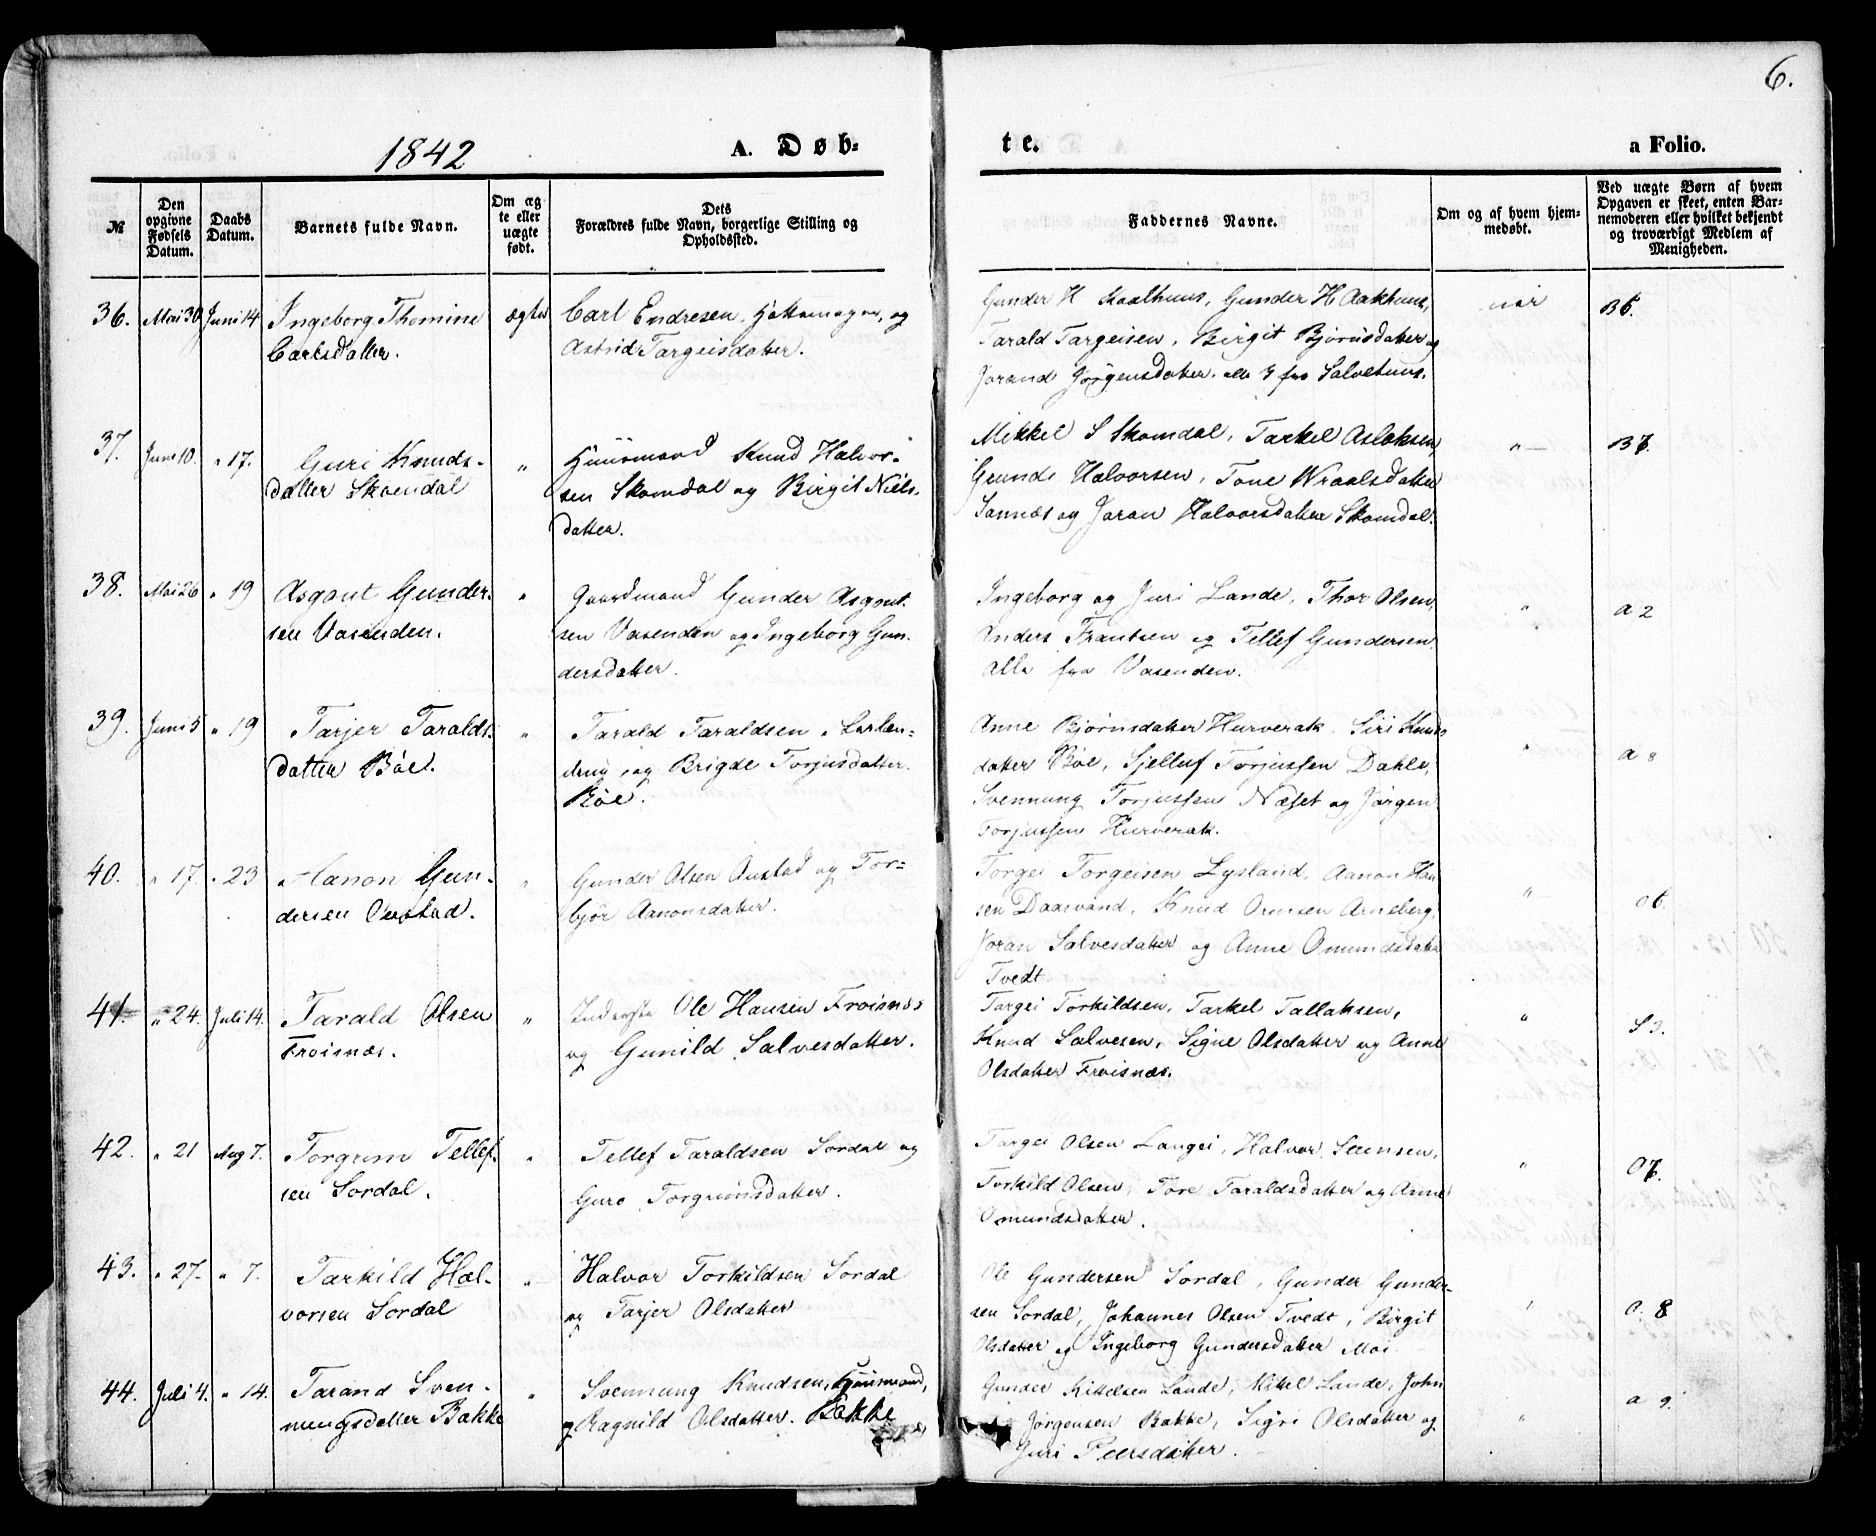 6.
1842 A. Døb= te. a Folio.
№
Den opgivne Fødsels Datum.
Daabs Datum.
Barnets fulde Navn.
Om ægte eller uægte født.
Dets Forældres fulde Navn, borgerlige Stilling og Opholdssted.
Faddernes Navne.
Om og af hvem hjemmedøbt.
Ved uægte Børn af hvem Opgaven er skeet, enten Barnemoderen eller hvilket bekjendt og troværdigt Medlem af Menigheden.
36. Mai 30 Juni 14 Ingeborg Thomine ægte Carl Endresen, og
Carlsdatter. Astrid Targeisdatter.
Gunder H Gunder H. Aakhuus,
Tarald Targeisen, Birgit Bjørnsdatter og
Jorand Jørgensdatter, alle fra
37. Juni 10. " 17. Guri Knuds- " Huusmand Knud Halvor-
datter Skomdal sen Skomdal og Birgit Niels-
datter.
Mikkel S Skomdal, Tarkel Aslaksen, "
Gunde Halvorsen, Tone Wraalsdatter
Sannæs og Joran Halvorsdatter Skomdal.
38. Mai 26 " 19 Asgout Gunder- " Gaardmand Gunder Asgout-
sen Vasenden. sen Vasenden og Ingeborg Gun-
dersdatter.
Ingeborg og Juri Lande, Thor Olsen, " a 2
Anders Frantsen og Tellef Gundersen,
Alle fra Vasenden.
39. Juni 5 " 19 Tarjer Taralds- " Tarald Taraldsen
datter Bøe. og Brigde Torjusdatter
Bøe.
Anne Bjørnsdatter Hurverak, Siri Knuds " a 8
datter Bøe, Sjelluf Torjussen Dahle,
Svennung Torjussen Næset og Jørgen
Torjussen Hurverak.
40. " 17. " 23 Aanon Gun- " Gunder Olsen Austad og Tor-
dersen Austad. bjør Aanonsdatter.
Torgei Torgeisen Lysland, Aanon Han "
sen Daasvand, Knud Ormsen Arneberg,
Joran Salvesdatter og Anne Omundsdatter
Tvedt.
41. " 24. Juli 14. Tarald Olsen " Inderste Ole Hansen Froisnæs
Froisnæs. og Gunild Salvesdatter.
Targei Torkildsen, Tarkel Tallaksen, " S 3.
Knud Salvesen, Signe Olsdatter og Anne
Olsdatter Froisnæs.
42. " 21 Aug 7. Torgrim Tellef- " Tellef Taraldsen Sordal og
sen Sordal. Guro Torgrimsdatter.
Targei Olsen Langei, Halvor "
Torkild Olsen, Tore Taraldsdatter og Anne
Omundsdatter.
43. " 27. " 7. Tarkild Hal- " Halvor Torkildsen Sordal
vorsen Sordal og Tarjer Olsdatter
Ole Gundersen Sordal, Gunder Gunder- " O. 8
sen Sordal, Johannes Olsen Tvedt, Birgit
Olsdatter og Ingeborg Gundersdatter Moi.
44. Juli 4. " 14. Tarand Sven- " Svennung Knudsen, Huusmand,
nungsdatter Bakke og Ragnild Olsdatter. Bakke
Gunder Kittelsen Lande, Kittel Lande, John " a 9.
Jørgensen Bakke, Sigri Olsdatter og
Juri Peersdatter.